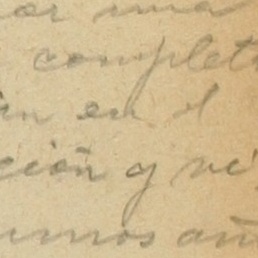 or una
complet
ón en el
ción y vi
umos añ